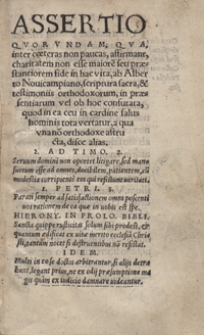 ASSERTIO
QVORVNDAM, QVA,
inter cæteras non paucas, affirmant,
charitatem non esse maiorē seu præ
stantiorem fide in hac vita, ab Alber
to Nouicampiano, scriptura sacra, &
testimoniis orthodoxorum, in præ
sentiarum vel ob hoc confutata,
quod in ea ceu in cardine salus
hominis tota vertatur, a qua
vna nō orthodoxe astru
cta, disce alias.
2. AD TIMO. 2.
Seruum domini non oportet litigare, sed man
suetum esse ad omnes, docibilem, patientem, cū
modestia corripientē eos qui resistunt veritati.
1. PETRI. 3.
Parati semper ad satisfactionem omni poscenti
vos rationem de ea quæ in vobis est spe.
HIERONY. IN PROLO. BIBLI.
Sancta quippe rusticitas solum sibi prodest, &
quantum ædificat ex vitæ merito ecclesiā Christi
tantum nocet si destruentibus nō resistat.
IDEM.
Multi in to se doctos arbitrantur, si aliis detra
hant, legant prius, ne ex odii præsumptione ma
gis quam ex iudicio damnare videantur.